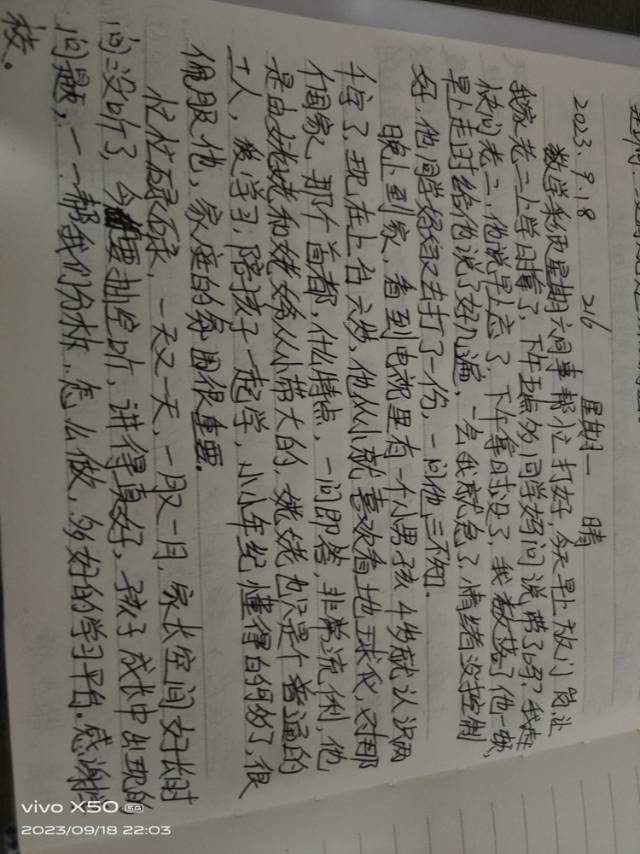 2023.9.18 216 星期一 晴
数学系统星期六同事帮忙打好,今天早上放门岗让
我家老二上学时拿了,下午五点多同学妈问说带了吗?我赶
快问老二,他说早上忘了,下午拿时没了,我数落了他一顿,
早上走时给他说了好几遍,一会我就急了,情绪没控制
好,他同学妈又去打了一份,一问他三不知。
晚上到家,看到电视里有一个小男孩4岁就认识两
千字了,现在上台六岁,他从小就喜欢看地球仪,对那
个国家,那个首都,什么特点,一问即答,非常流利,他
是由姥姥和姥爷从小带大的,姥姥也只是个普通的
工人,爱学习,陪孩子一起学,小小年纪懂得的何多了,很
佩服他,家庭的氛围很重要。
忙忙碌碌,一天又一天,一月又一月,家长空间好长时
间没听了,今要抽空听,讲得真好,孩子成长中出现的
问题,一一帮我们分析,怎么做,多好的学习平台。感谢
校。
vivo X50 5G
2023/09/18 22:03